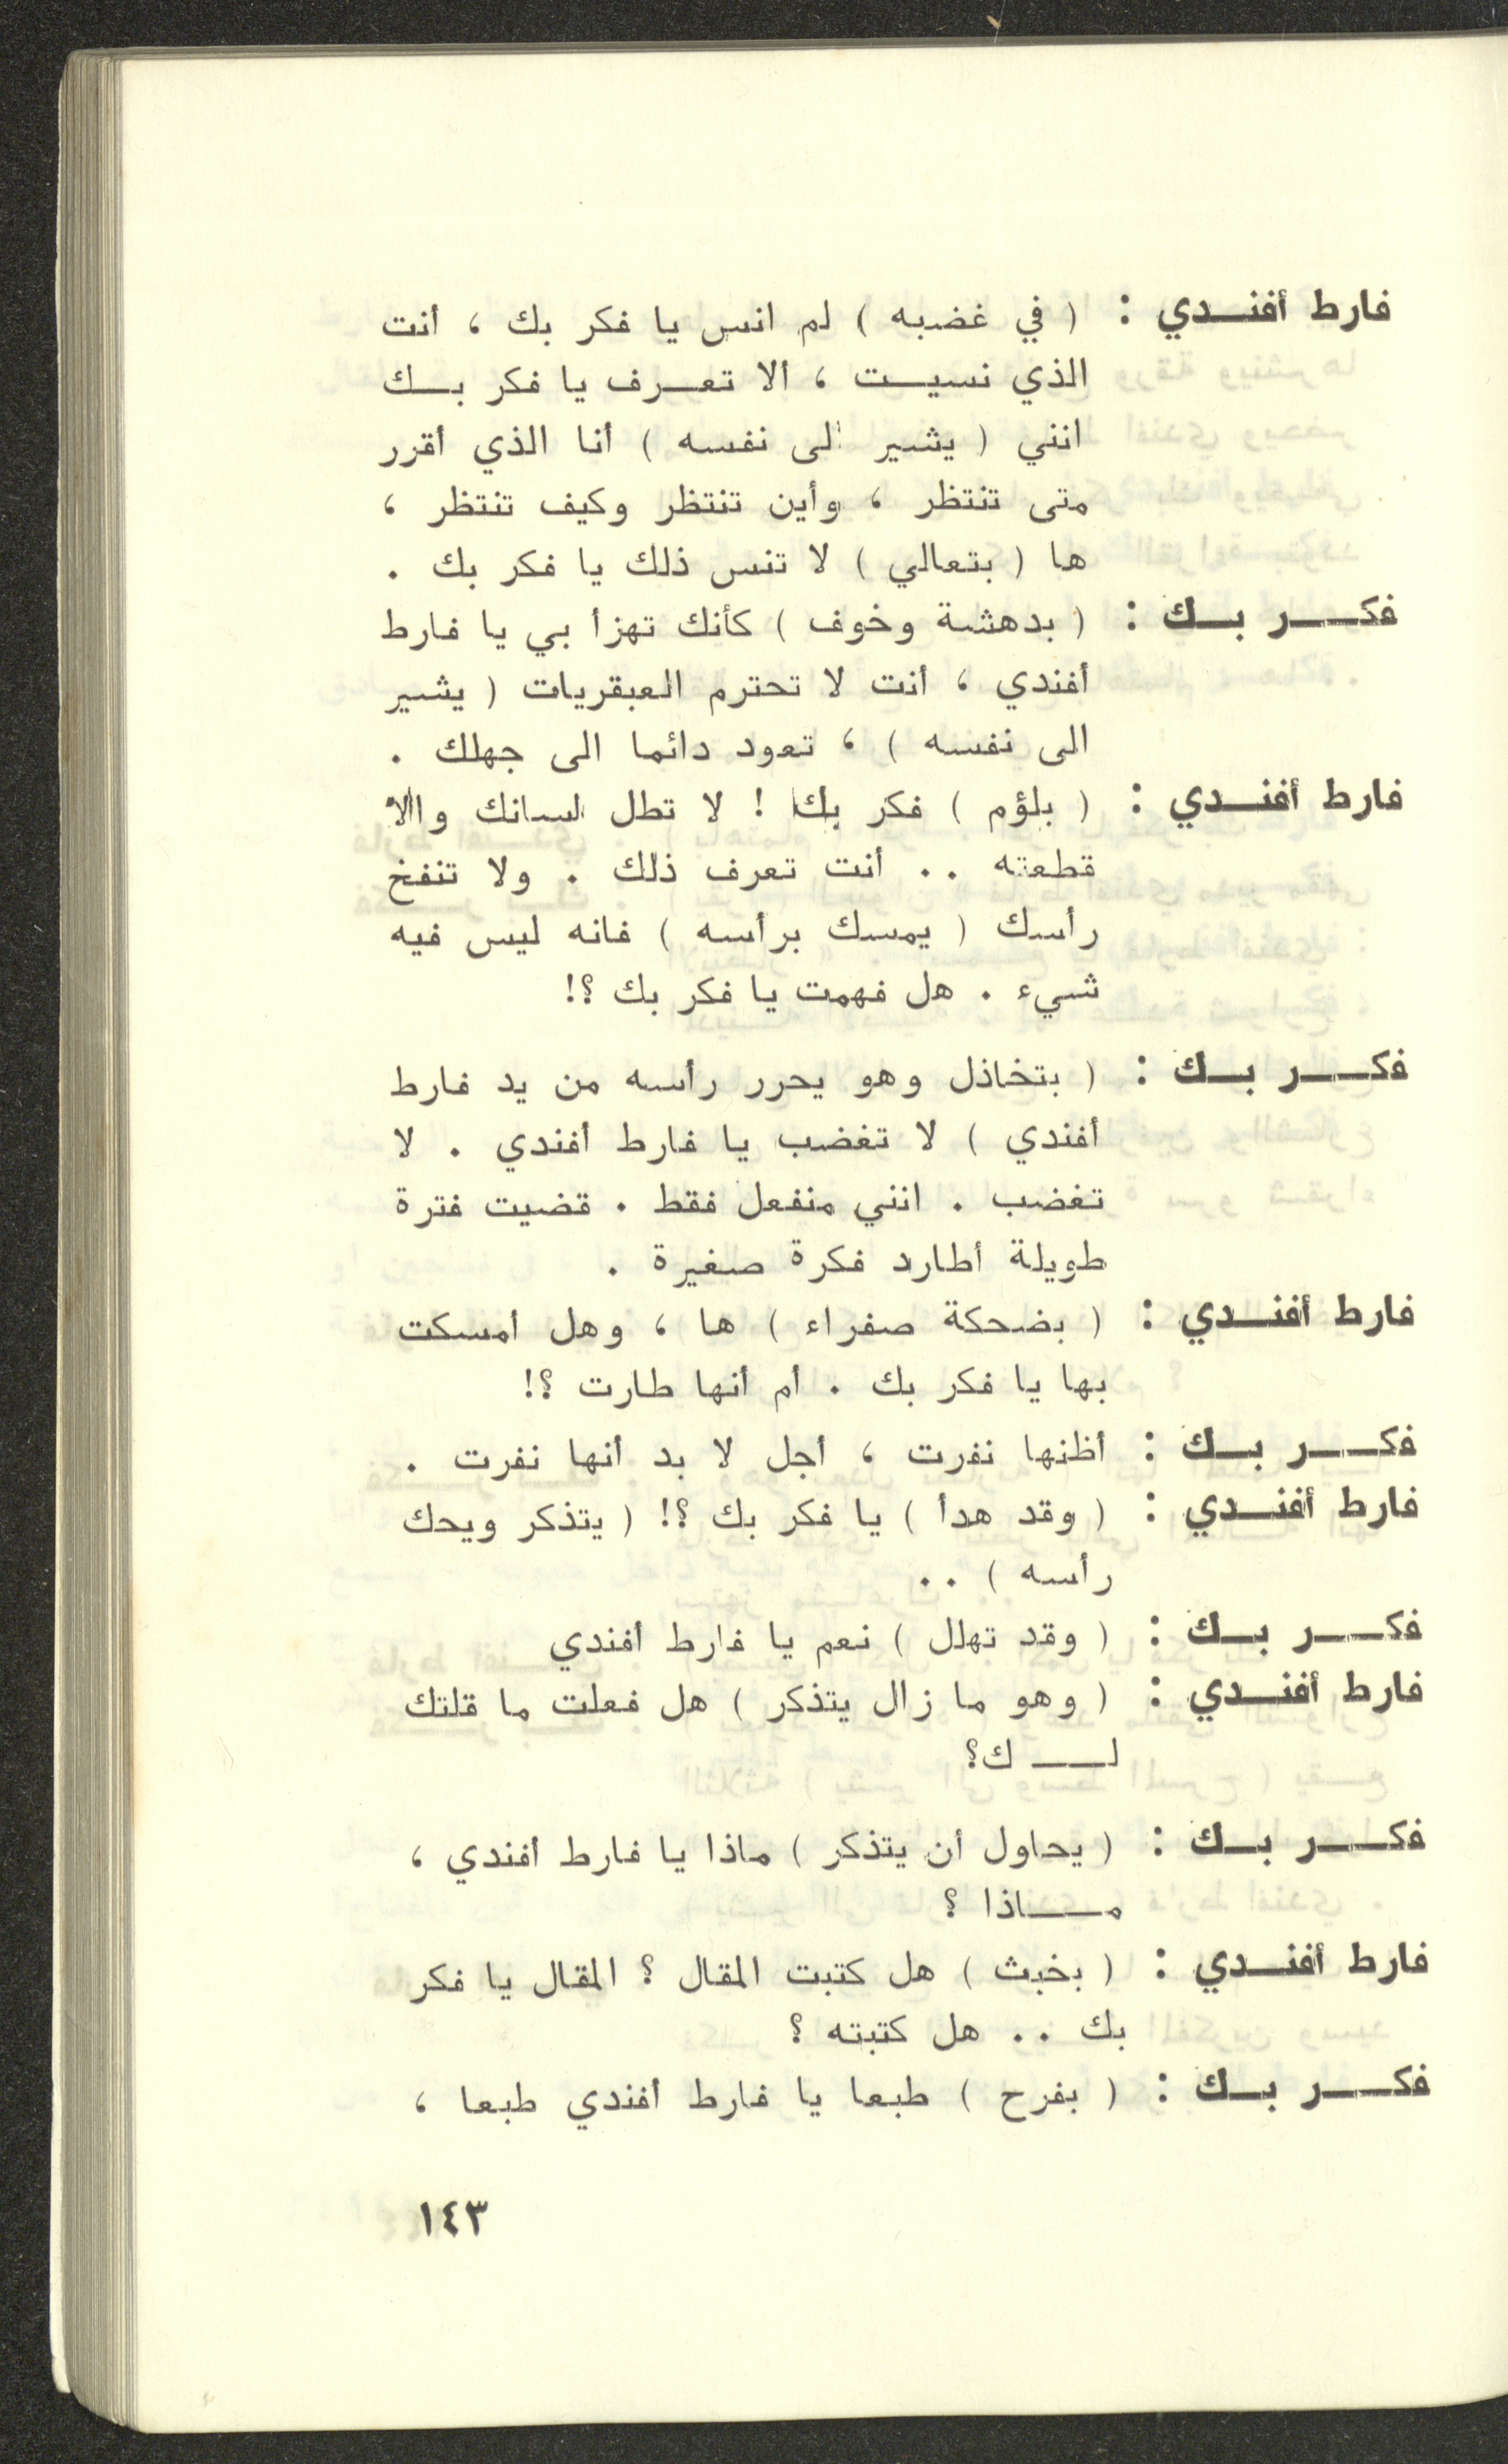 فارط أفندي : ( في غضبه ) لم انس يا فكر بك ، أنت
الذي نسيت ، ألا تعرف يا فكر بك
انني ( يشير الى نفسه ) أنا الذي أقرر
متى تنتظر ، وأين تنتظر وكيف تنتظر ،
ها ( بتعالي ) لا تنس ذلك يا فكر بك .
فكر بك : ( بدهشة وخوف ) كأنك تهزأ بي يا فارط
أفندي ، أنت لا تحترم العبقريات ( يشير
الى نفسه ) ، تعود دائما الى جهلك .
فارط أفندي : ( بلؤم ) فكر بك ! لا تطل لسانك والا
قطعته .. أنت تعرف ذلك . ولا تنفخ
رأسك ( يمسك برأسه ) فانه ليس فيه
شيء . هل فهمت يا فكر بك ؟!
فكر بك : ( بتخاذل وهو يحرر رأسه من يد فارط
أفندي ) لا تغضب يا فارط أفندي . لا
تغضب . انني منفعل فقط . قضيت فترة
طويلة أطارد فكرة صغيرة .
فارط أفندي : ( بضحكة صفراء ) ها ، وهل أمسكت
بها يا فكر بك . أم أنها طارت ؟!
فكر بك : أظنها نفرت ، أجل لا بد أنها نفرت .
فارط أفندي : ( وقد هدأ ) يا فكر بك ؟! ( يتذكر ويحك
رأسه ) ..
فكر بك : ( وقد تهلل ) نعم يا فارط أفندي
فارط أفندي : ( وهو ما زال يتذكر ) هل فعلت ما قلتك
لك؟
فكر بك : ( يحاول أن يتذكر ) ماذا يا فارط أفندي ،
ماذا ؟
فارط أفندي : ( بخبث ) هل كتبت المقال ؟ المقال يا فكر
بك .. هل كتبته ؟
فكر بك : ( بفرح ) طبعا يا فارط أفندي طبعا ،
١٤٣